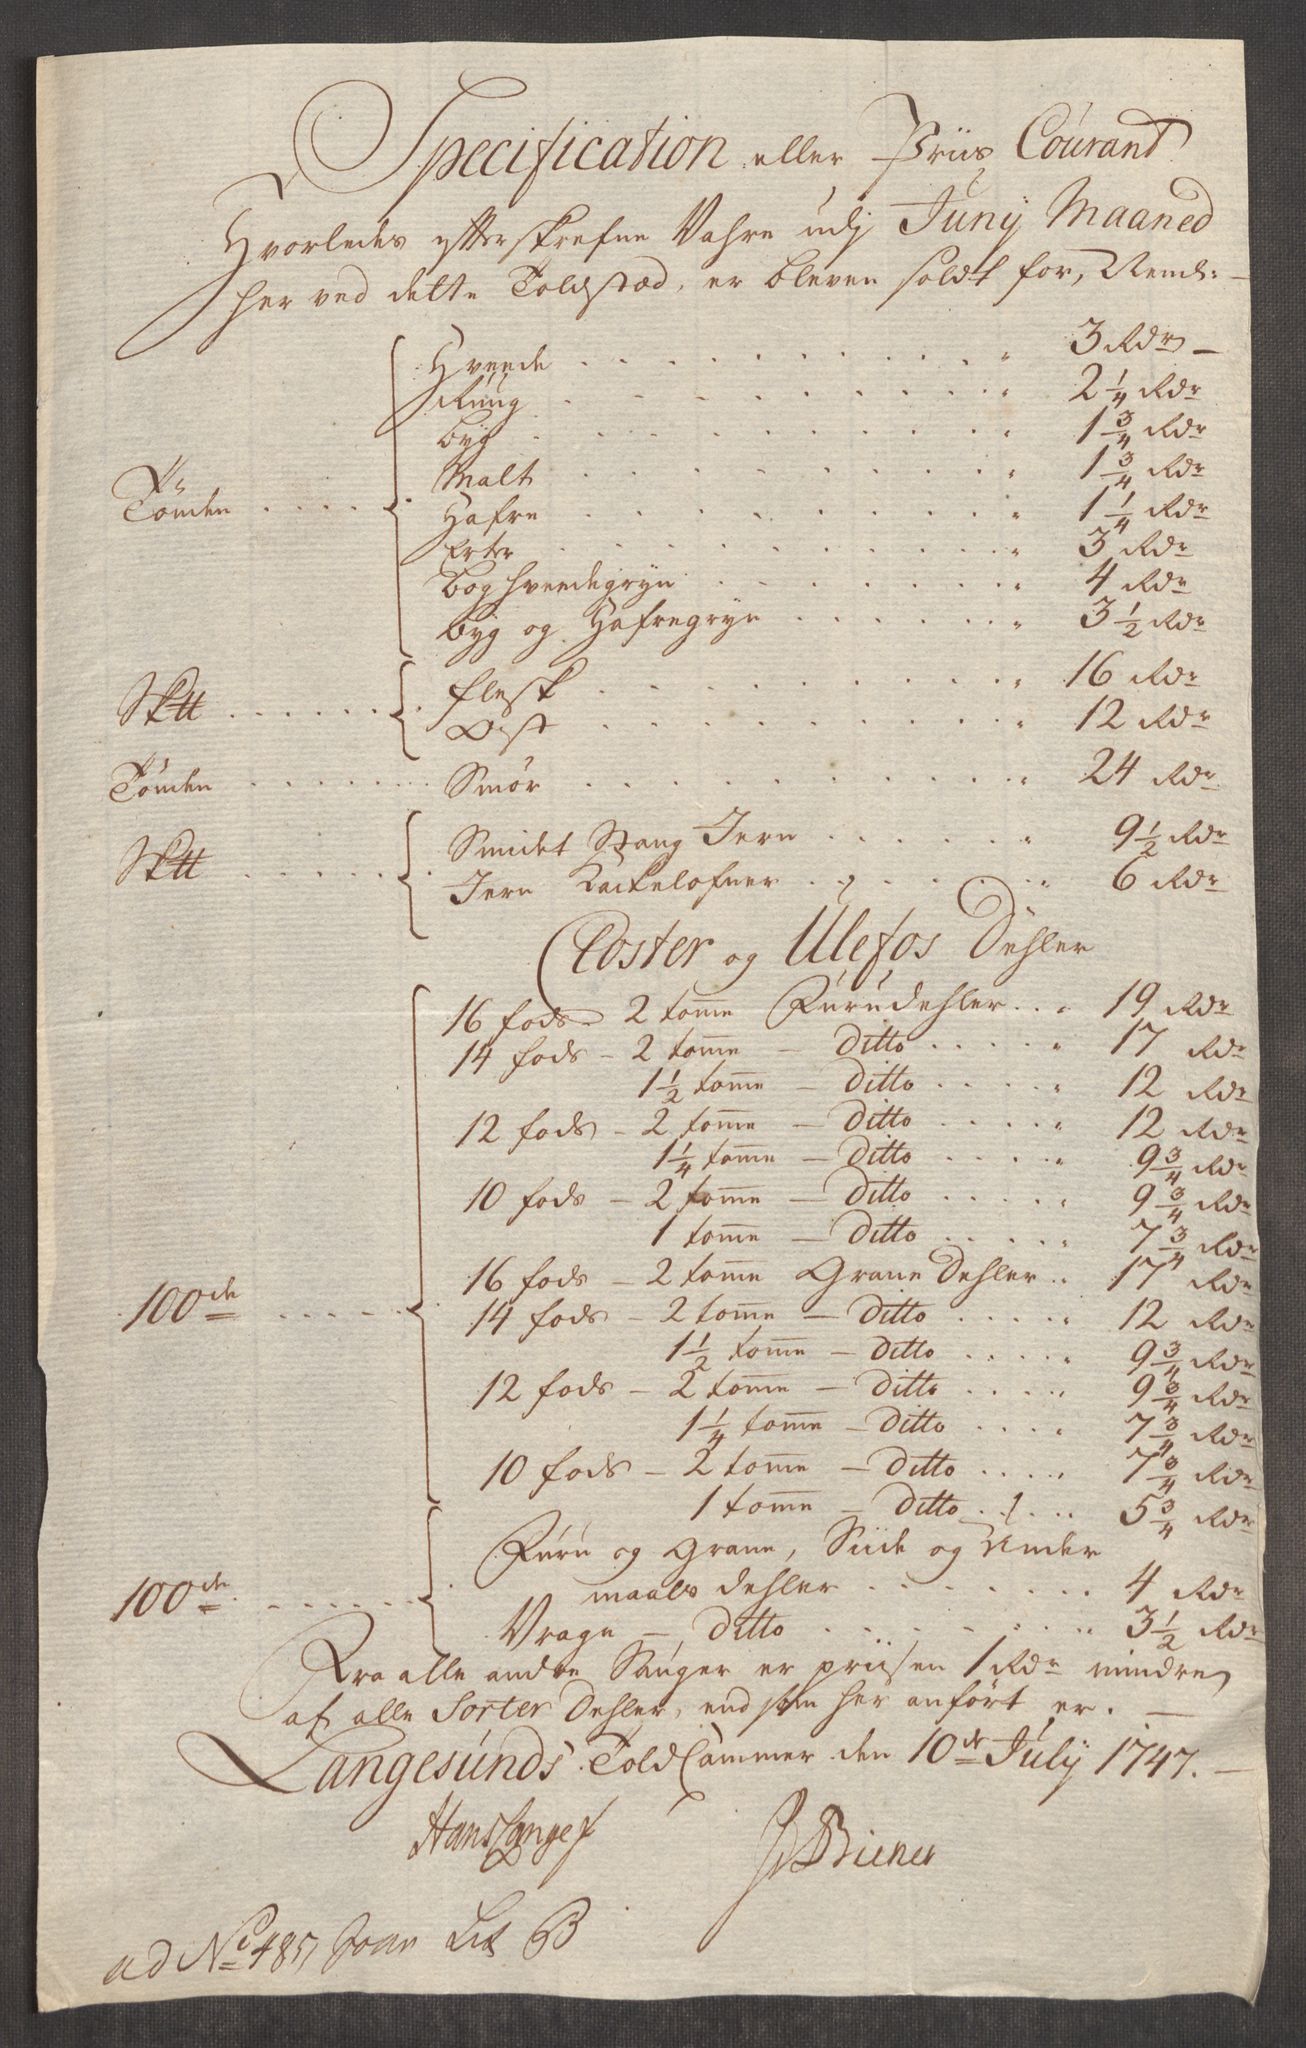 Specification eller Priis Courant
Hvorledes efterskrefne Vahre udj Junij Maaned
her ved dette Toldstæd, er bleven soldt for, Neml:
Hveede . . . . 3 Rdr
Ruug . . . . 2 1/4 Rdr
Byg . . . . 1 3/4 Rdr
Malt . . . . 1 3/4 Rdr
Tönden . . . . Hafre . . . . 1 1/4 Rdr
Erter . . . . 3 Rdr
Boghveedegryn . . . . 4 Rdr
Byg og Hafregryn . . . . 3 1/2 Rdr
Sk℔ . . . . Flesk . . . . 16 Rdr
Ost . . . . 12 Rdr
Tönden . . . . Smör . . . . 24 Rdr
Sk℔ . . . . Smidet Stang Jern . . . . 9 1/2 Rdr
Jern Kackelofner . . . . 6 Rdr
Closter og Ulefos Dehler
16 fods - 2 tomme Furudehler . . . 19 Rdr
14 fods - 2 tomme - Ditto . . . . 17 Rdr
1 1/2 tomme - Ditto . . . . 12 Rdr
12 fods - 2 tomme - Ditto . . . . 12 Rdr
1 1/4 tomme - Ditto . . . . 9 3/4 Rdr
10 fods - 2 tomme - Ditto . . . . 9 3/4 Rdr
1 tomme - Ditto . . . . 7 3/4 Rdr
16 fods - 2 tomme Grane Dehler . . 17 Rdr
100de . . . . 14 fods - 2 tomme - Ditto . . . . 12 Rdr
1 1/2 tomme - Ditto . . . . 9 3/4 Rdr
12 fods - 2 tomme - Ditto . . . . 9 3/4 Rdr
1 1/4 tomme - Ditto . . . . 7 3/4 Rdr
10 fods - 2 tomme - Ditto . . . . 7 3/4 Rdr
1 tomme - Ditto . . . . 5 3/4 Rdr
Furu og Grane, Siide og Under
100de . . . . maals Dehler . . . . 4 Rdr
Vrage - Ditto . . . . 3 1/2 Rdr
Fra alle andre Sauger er priisen 1 Rdr mindre
af alle Sorter Dehler, end som her anfört er.
Langesunds Told Cammer den 10de July 1747.
Hans Lange
Biener
ad No 485 Lit B